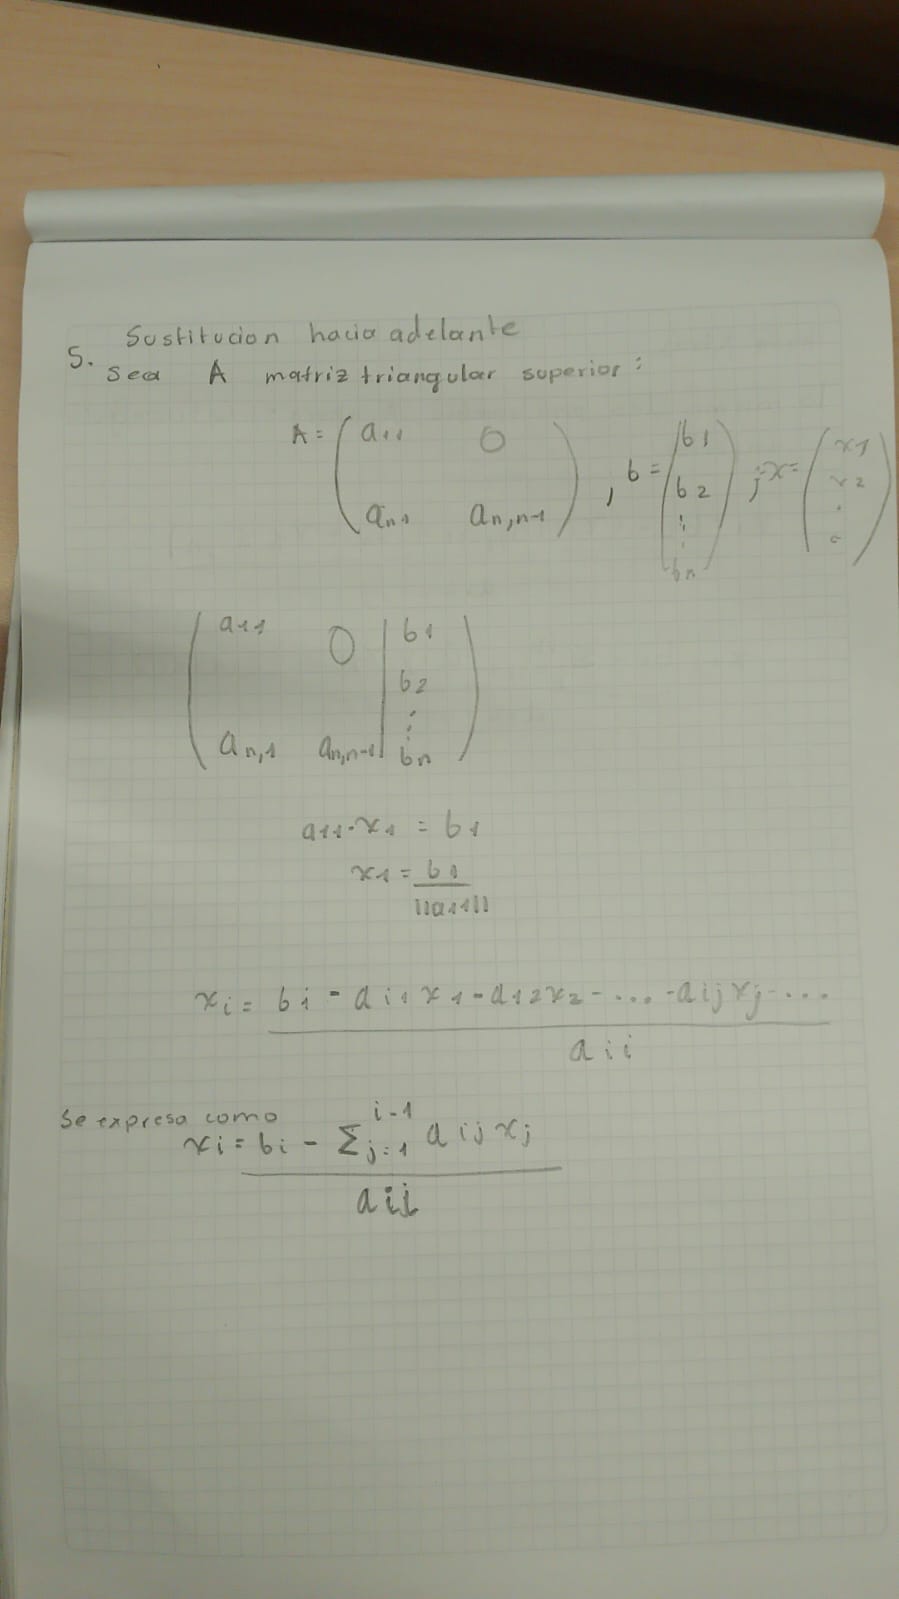 Sustitucion hacia adelante
5. sea A matriz triangular superior:
A = ( a11 0 an1 an,n-1 ) , b = ( b1 b2 ⋮ bn ) ; x = ( x1 x2 . . )
( a11 0 | b1
b2
⋮
an,1 an,n-1 | bn )
a11·x1 = b1
x1 = b1
||a11||
xi = bi - ai1 x1 - a12 x2 - ... - aij xj - ...
aii
Se expresa como
xi = bi - Σ_{j=1}^{i-1} aij xj
aij